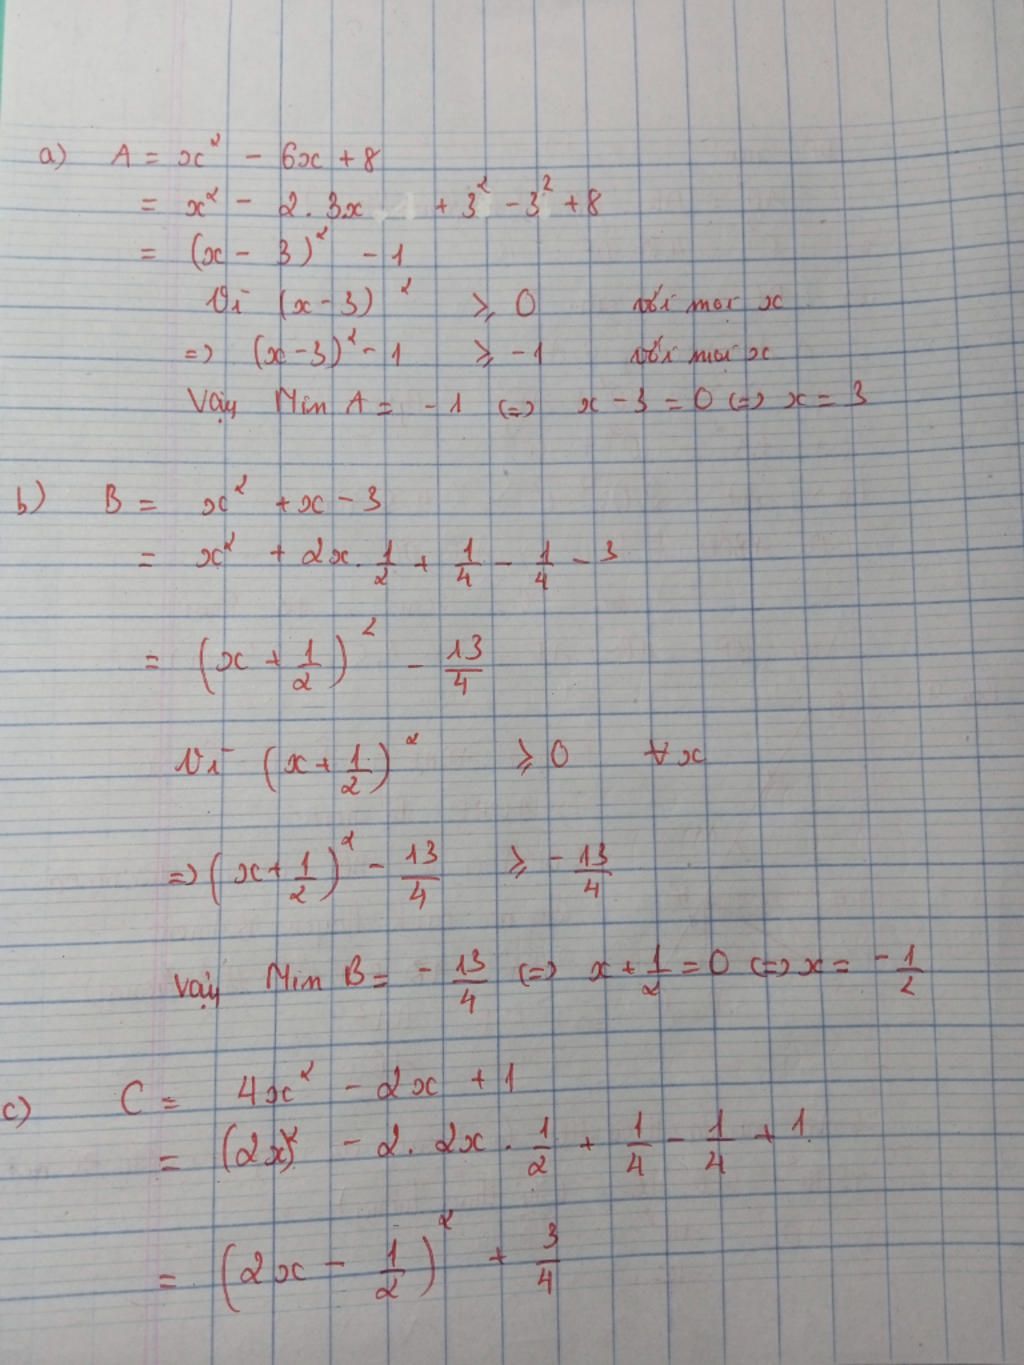 a) A = x² - 6x + 8
= x² - 2.3x + 3² - 3² + 8
= (x - 3)² - 1
Vì (x-3)² ⩾ 0 với mọi x
=> (x-3)² - 1 ⩾ -1 với mọi x
Vậy Min A = -1 <=> x - 3 = 0 <=> x = 3
b) B = x² + x - 3
= x² + 2x . 1/2 + 1/4 - 1/4 - 3
= (x + 1/2)² - 13/4
Vì (x + 1/2)² ⩾ 0 ∀x
=> (x + 1/2)² - 13/4 ⩾ - 13/4
Vậy Min B = - 13/4 <=> x + 1/2 = 0 <=> x = - 1/2
c) C = 4x² - 2x + 1
= (2x)² - 2. 2x . 1/2 + 1/4 - 1/4 + 1
= (2x - 1/2)² + 3/4